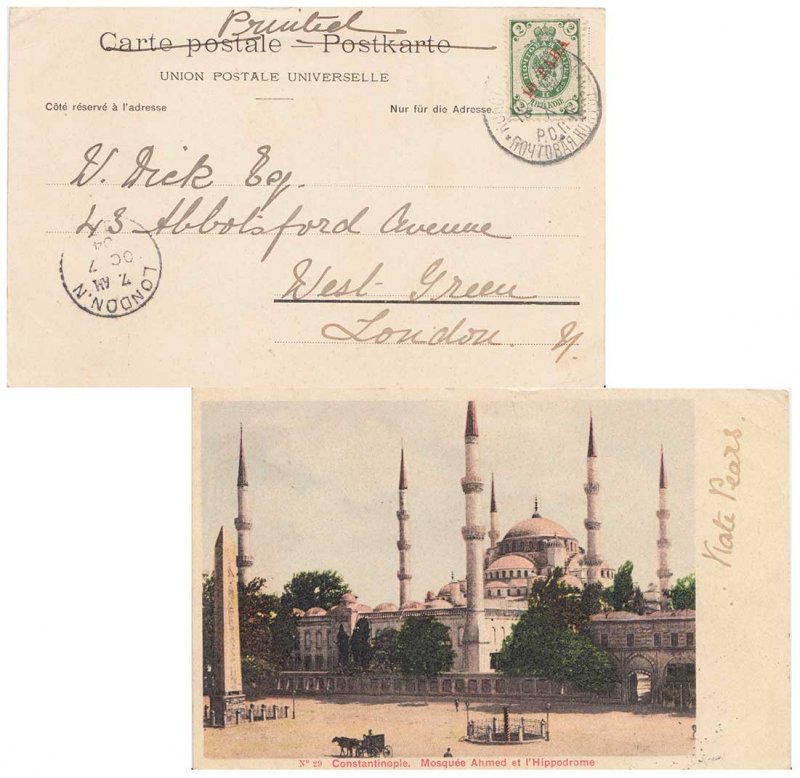 Printed
Carte postale – Postkarte
UNION POSTALE UNIVERSELLE
Côté réservé à l'adresse
Nur für die Adresse.
2 2
ПОЧТОВАЯ МАРКА
2 ДВѢ КОП. 2
РОС
ПОЧТОВАЯ
W. Dick Esq.
43 Abbotsford Avenue
West Green
London. N.
LONDON.N
7. AM
OC 7
04
Kate Pears.
Nº 29 Constantinople. Mosquée Ahmed et l'Hippodrome